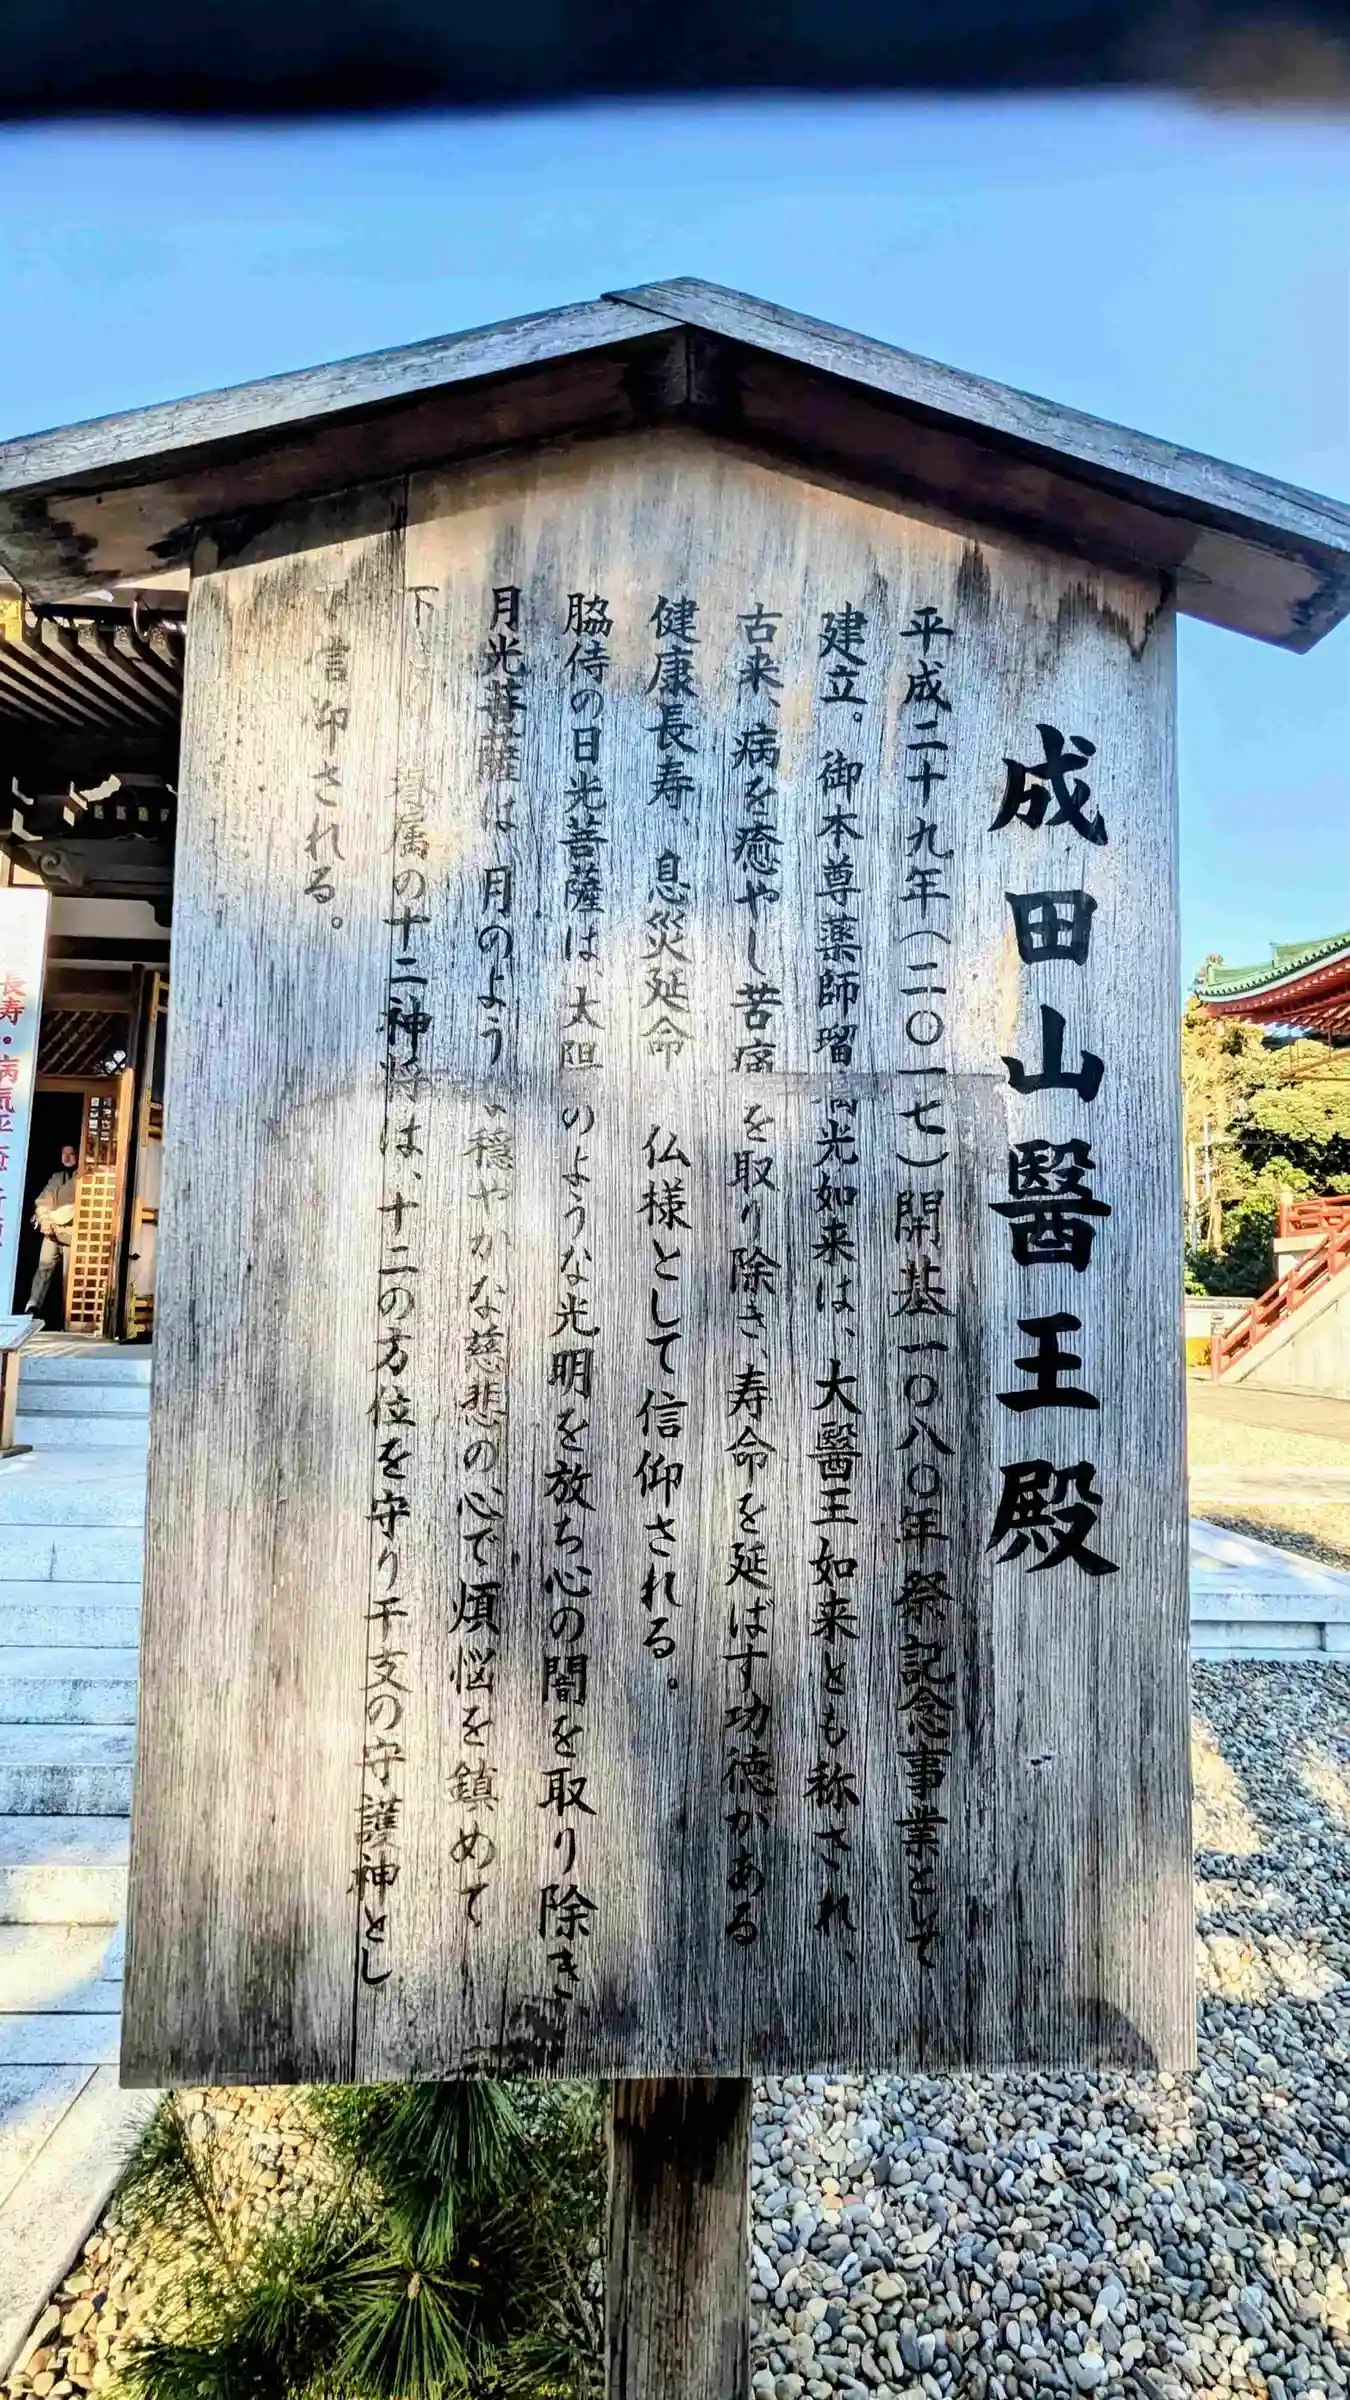 成田山醫王殿
平成二十九年(二〇一七)開基一〇八〇年祭記念事業として
建立。御本尊薬師瑠璃光如来は、大醫王如来とも称され、
古来、病を癒やし苦痛を取り除き、寿命を延ばす功徳がある
健康長寿、息災延命 仏様として信仰される。
脇侍の日光菩薩は、太陽のような光明を放ち心の闇を取り除き
月光菩薩は月のような穏やかな慈悲の心で煩悩を鎮めて
下 眷属の十二神将は、十二の方位を守り干支の守護神とし
て信仰される。
長寿・病気平癒